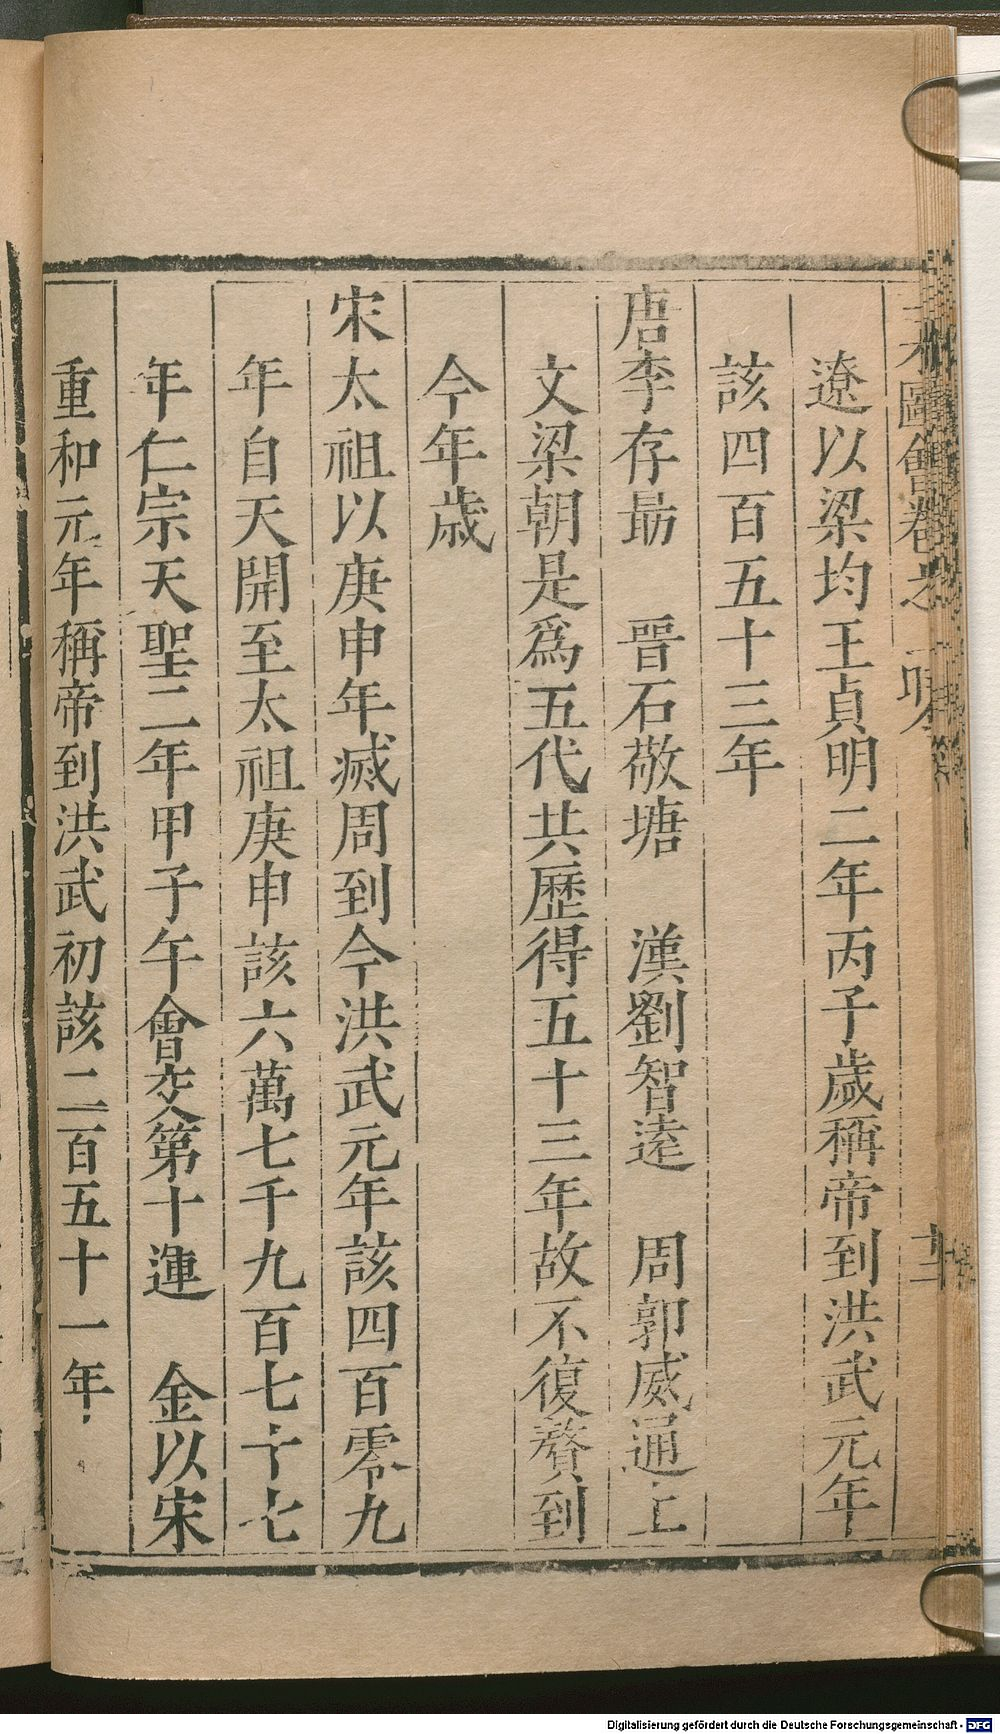 圖會卷之
十二
遼以梁均王貞明二年丙子歲稱帝到洪武元年
該四百五十三年
唐李存勗　晉石敬塘　漢劉智遠　周郭威通上
文梁朝是爲五代共歷得五十三年故不復贅到
今年歲
宋太祖以庚申年滅周到今洪武元年該四百零九
年自天開至太祖庚申該六萬七千九百七十七
年仁宗天聖二年甲子午會交第十運　金以宋
重和元年稱帝到洪武初該二百五十一年
Digitalisierung gefördert durch die Deutsche Forschungsgemeinschaft - DFG